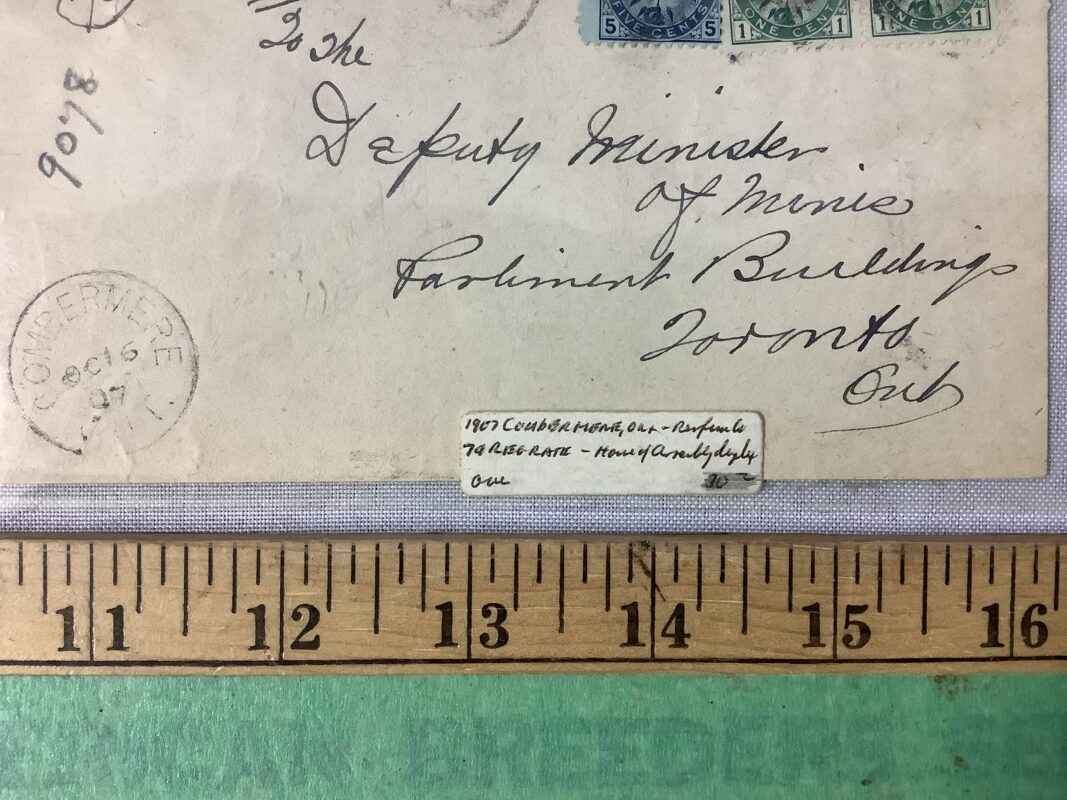 To The
FIVE CENTS
5 5
ONE CENT
1 1
ONE CENT
1 1
Deputy Minister
of. Mines
Parliment Buildings
Toronto
Ont
9078
COMBERMERE
OC 16
07
1907 COMBERMERE, Ont -
7¢ REG RATE - House of Assembly
Ove 10
11 12 13 14 15 16